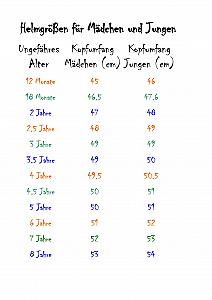 Helmgrößen für Mädchen und Jungen
Ungefähres Kopfumfang Kopfumfang
Alter Mädchen (cm) Jungen (cm)
12 Monate 45 46
18 Monate 46,5 47,6
2 Jahre 47 48
2,5 Jahre 48 49
3 Jahre 49 49
3,5 Jahre 49 50
4 Jahre 49,5 50,5
4,5 Jahre 50 51
5 Jahre 50 51
6 Jahre 51 52
7 Jahre 52 53
8 Jahre 53 54